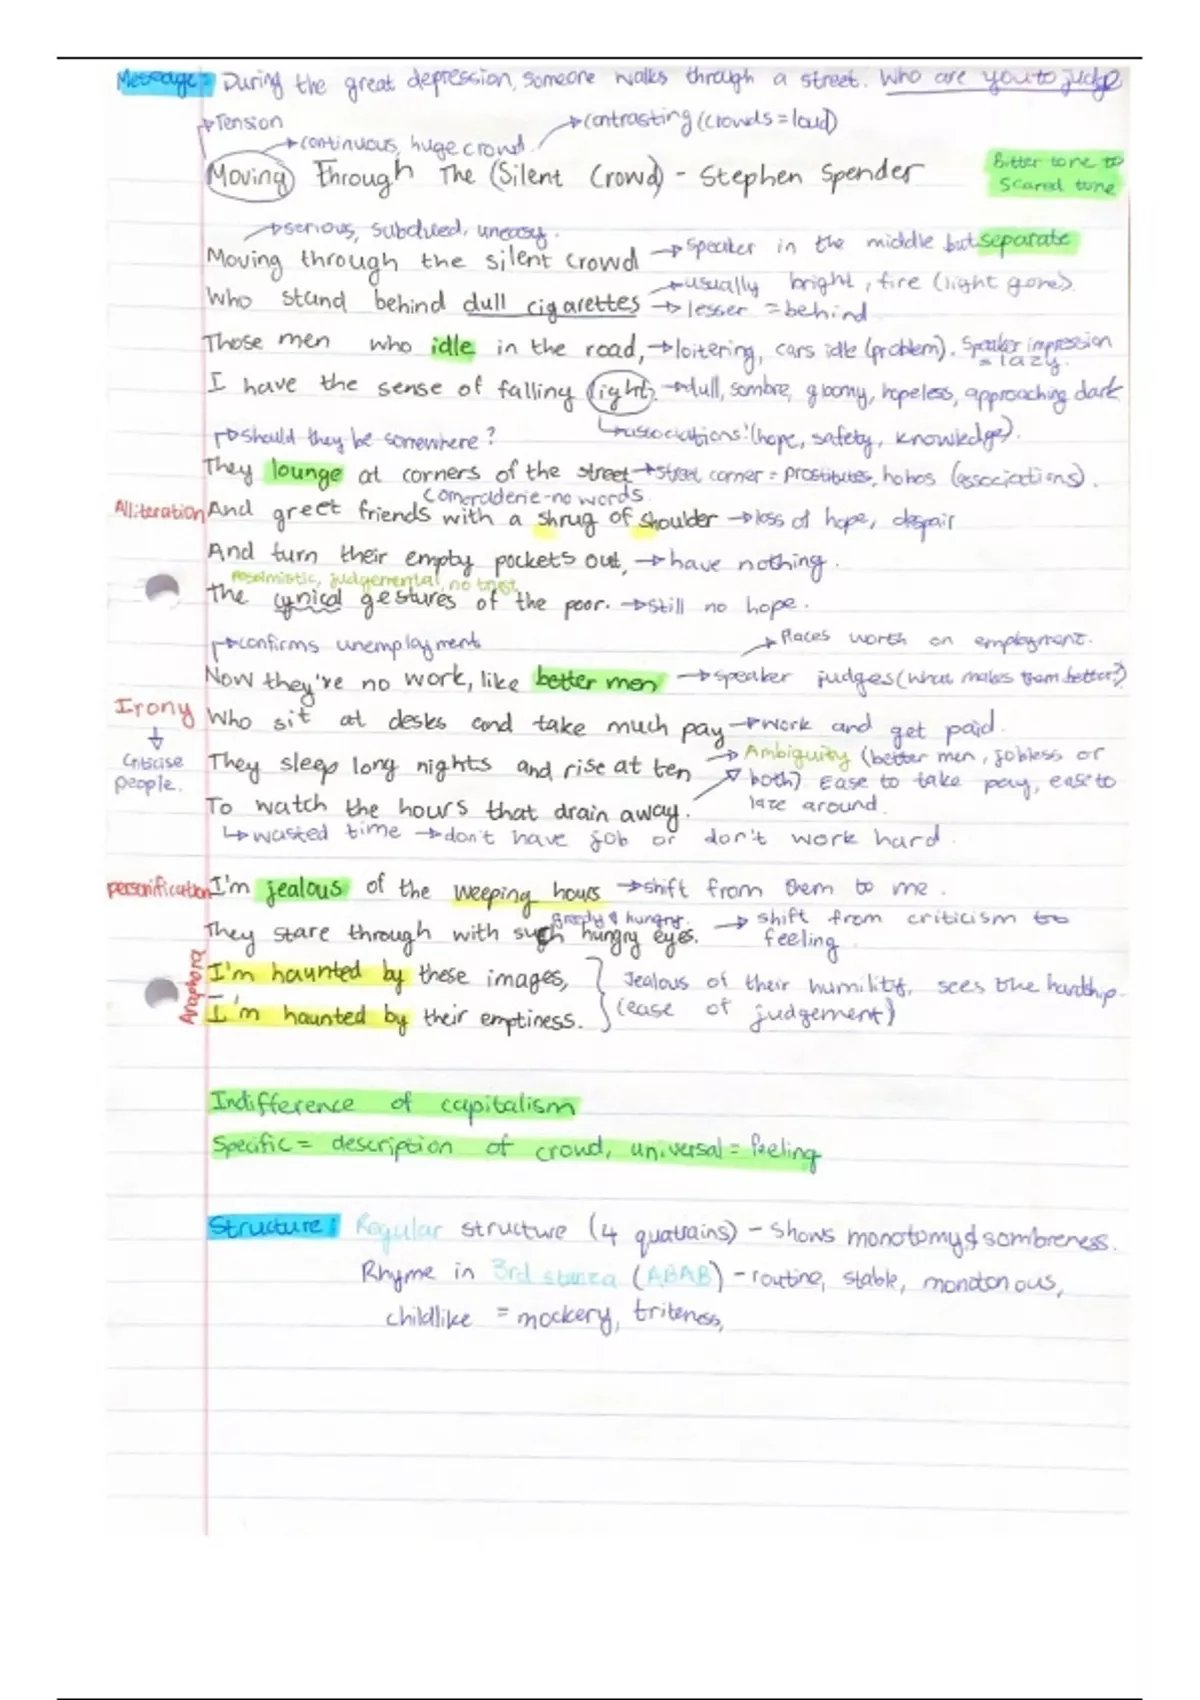 Message: During the great depression, someone walks through a street. Who are you to judge
Tension
contrasting (crowds = loud)
continuous, huge crowd.
Moving Through The (Silent Crowd) - Stephen Spender
Bitter tone to
Scared tone
serious, subdued, uneasy.
Moving through the silent crowd → speaker in the middle but separate
→ usually bright, fire (light gone).
Who stand behind dull cigarettes → lesser = behind
Those men who idle in the road, → loitering, cars idle (problem). Speaker impression
= lazy.
I have the sense of falling light. → dull, sombre, gloomy, hopeless, approaching dark
→ should they be somewhere? ↳ associations: (hope, safety, knowledge).
They lounge at corners of the street → street corner = prostitutes, hobos (associations).
comeraderie - no words.
Alliteration And greet friends with a shrug of shoulder → loss of hope, despair
And turn their empty pockets out, → have nothing.
Pessimistic, judgemental, no trust
The cynical gestures of the poor. → still no hope.
→ confirms unemployment → Places worth on employment.
Now they're no work, like better men → speaker judges (what makes them better?)
Irony Who sit at desks and take much pay → work and get paid.
↓
Criticise
people.
They sleep long nights and rise at ten → Ambiguity (better men, jobless or
both) Ease to take pay, ease to
To watch the hours that drain away. laze around.
↳ wasted time → don't have job or don't work hard.
personification I'm jealous of the weeping hours → shift from them to me.
greedy & hungry.
They stare through with such hungry eyes. → shift from criticism to
feeling
Anaphora
I'm haunted by these images, } Jealous of their humility, sees the hardship.
I'm haunted by their emptiness. } (ease of judgement)
Indifference of capitalism
Specific = description of crowd, universal = feeling
Structure: Regular structure (4 quatrains) - shows monotomy & sombreness.
Rhyme in 3rd stanza (ABAB) - routine, stable, monotonous,
childlike = mockery, triteness,